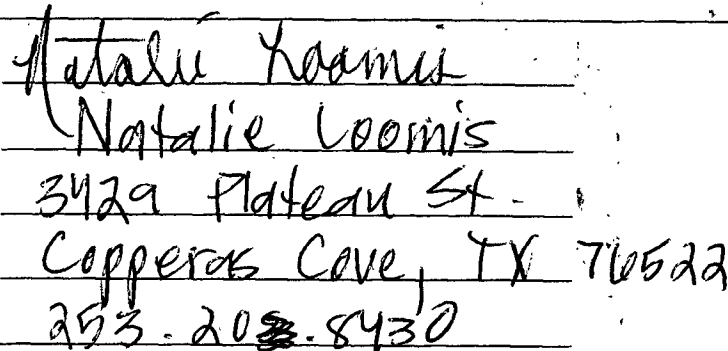 Natalie Loomis
Natalie Loomis
3429 Plateau St.
Copperas Cove, TX 76522